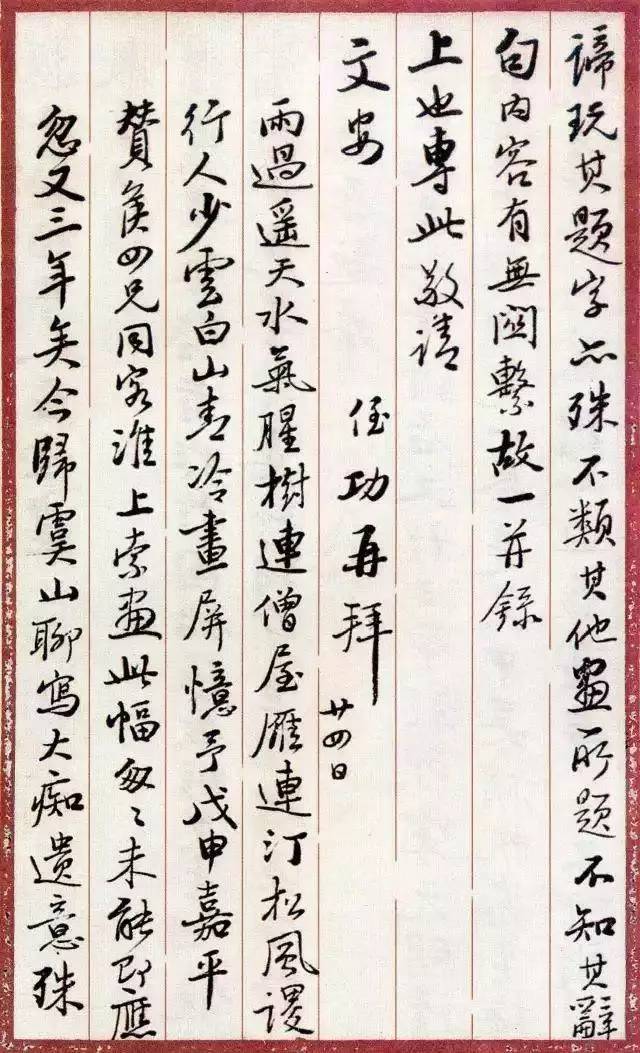 諦玩其題字亦殊不類其他畫所題不知其辭
句内容有無関繫故一并録
上也專此敬請
文安
侄功再拜
廿四日
雨過遥天水氣腥樹連僧屋雁連汀松風謖
行人少雲白山青冷畫屏憶予戊申嘉平
贊侯四兄同客淮上索畫此幅匆〻未能即應
忽又三年矣今歸虞山聊寫大痴遺意殊